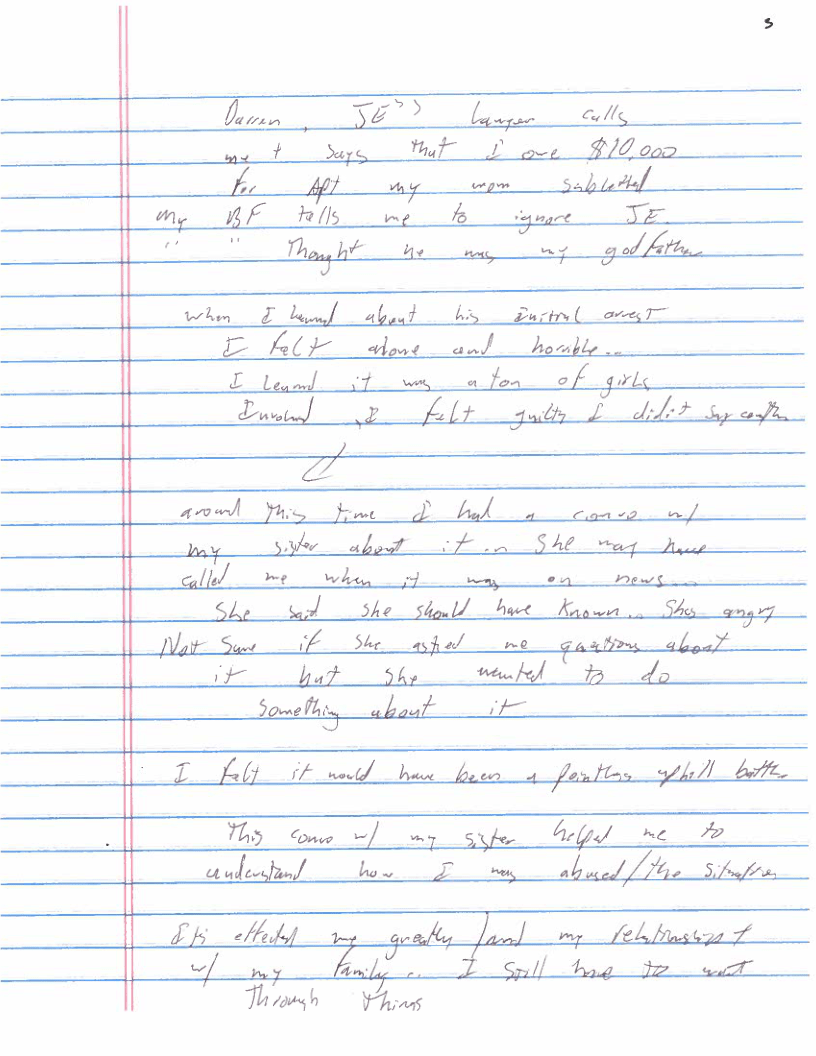 5
Darren, JE's Lawyer calls
me + says that I owe $10,000
for Apt my mom subletted
my BF tells me to ignore JE.
" " Thought he was my godfather
when I learned about his initial arrest
I felt alone and horrible...
I learned it was a ton of girls
Involved, I felt guilty I didn't say
around this time I had a convo w/
my sister about it... She may have
called me when it was on news...
She said she should have known... Shes angry
Not sure if she asked me questions about
it but she wanted to do
something about it
I felt it would have been a pointless uphill battle
This convo w/ my sister helped me to
understand how I was abused/the situation
It's effected me greatly and my relationship
w/ my family... I still have to
Through things